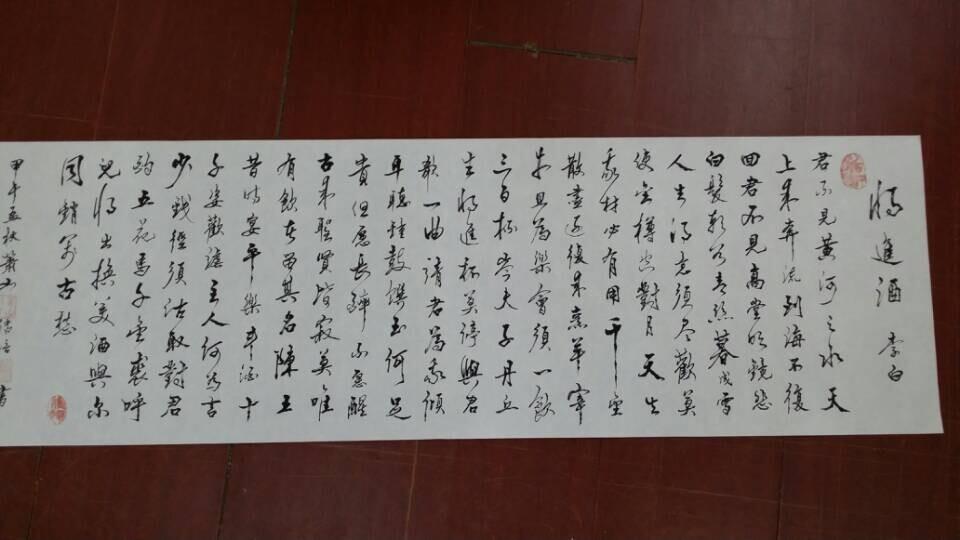 將進酒 李白
君不見黄河之水天
上来奔流到海不復
回君不見高堂明鏡悲
白髮朝如青絲暮成雪
人生得意須尽歡莫
使金樽空對月天生
我材必有用千金
散盡還復来烹羊宰
牛且為樂會須一飲
三百杯岑夫子丹丘
生將進杯莫停與君
歌一曲請君為我傾
耳聽鐘鼓饌玉何足
貴但愿長醉不愿醒
古来聖賢皆寂莫唯
有飲者留其名陳王
昔時宴平樂斗酒十
千恣歡謔主人何為言
少錢徑須沽取對君
酌五花馬千金裘呼
兒將出換美酒與尔
同銷萬古愁
甲午孟秋蕭山 書